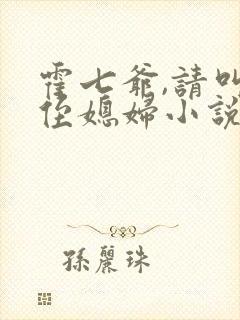 霍七爺,請叫
侄媳婦小說
孫麗珠